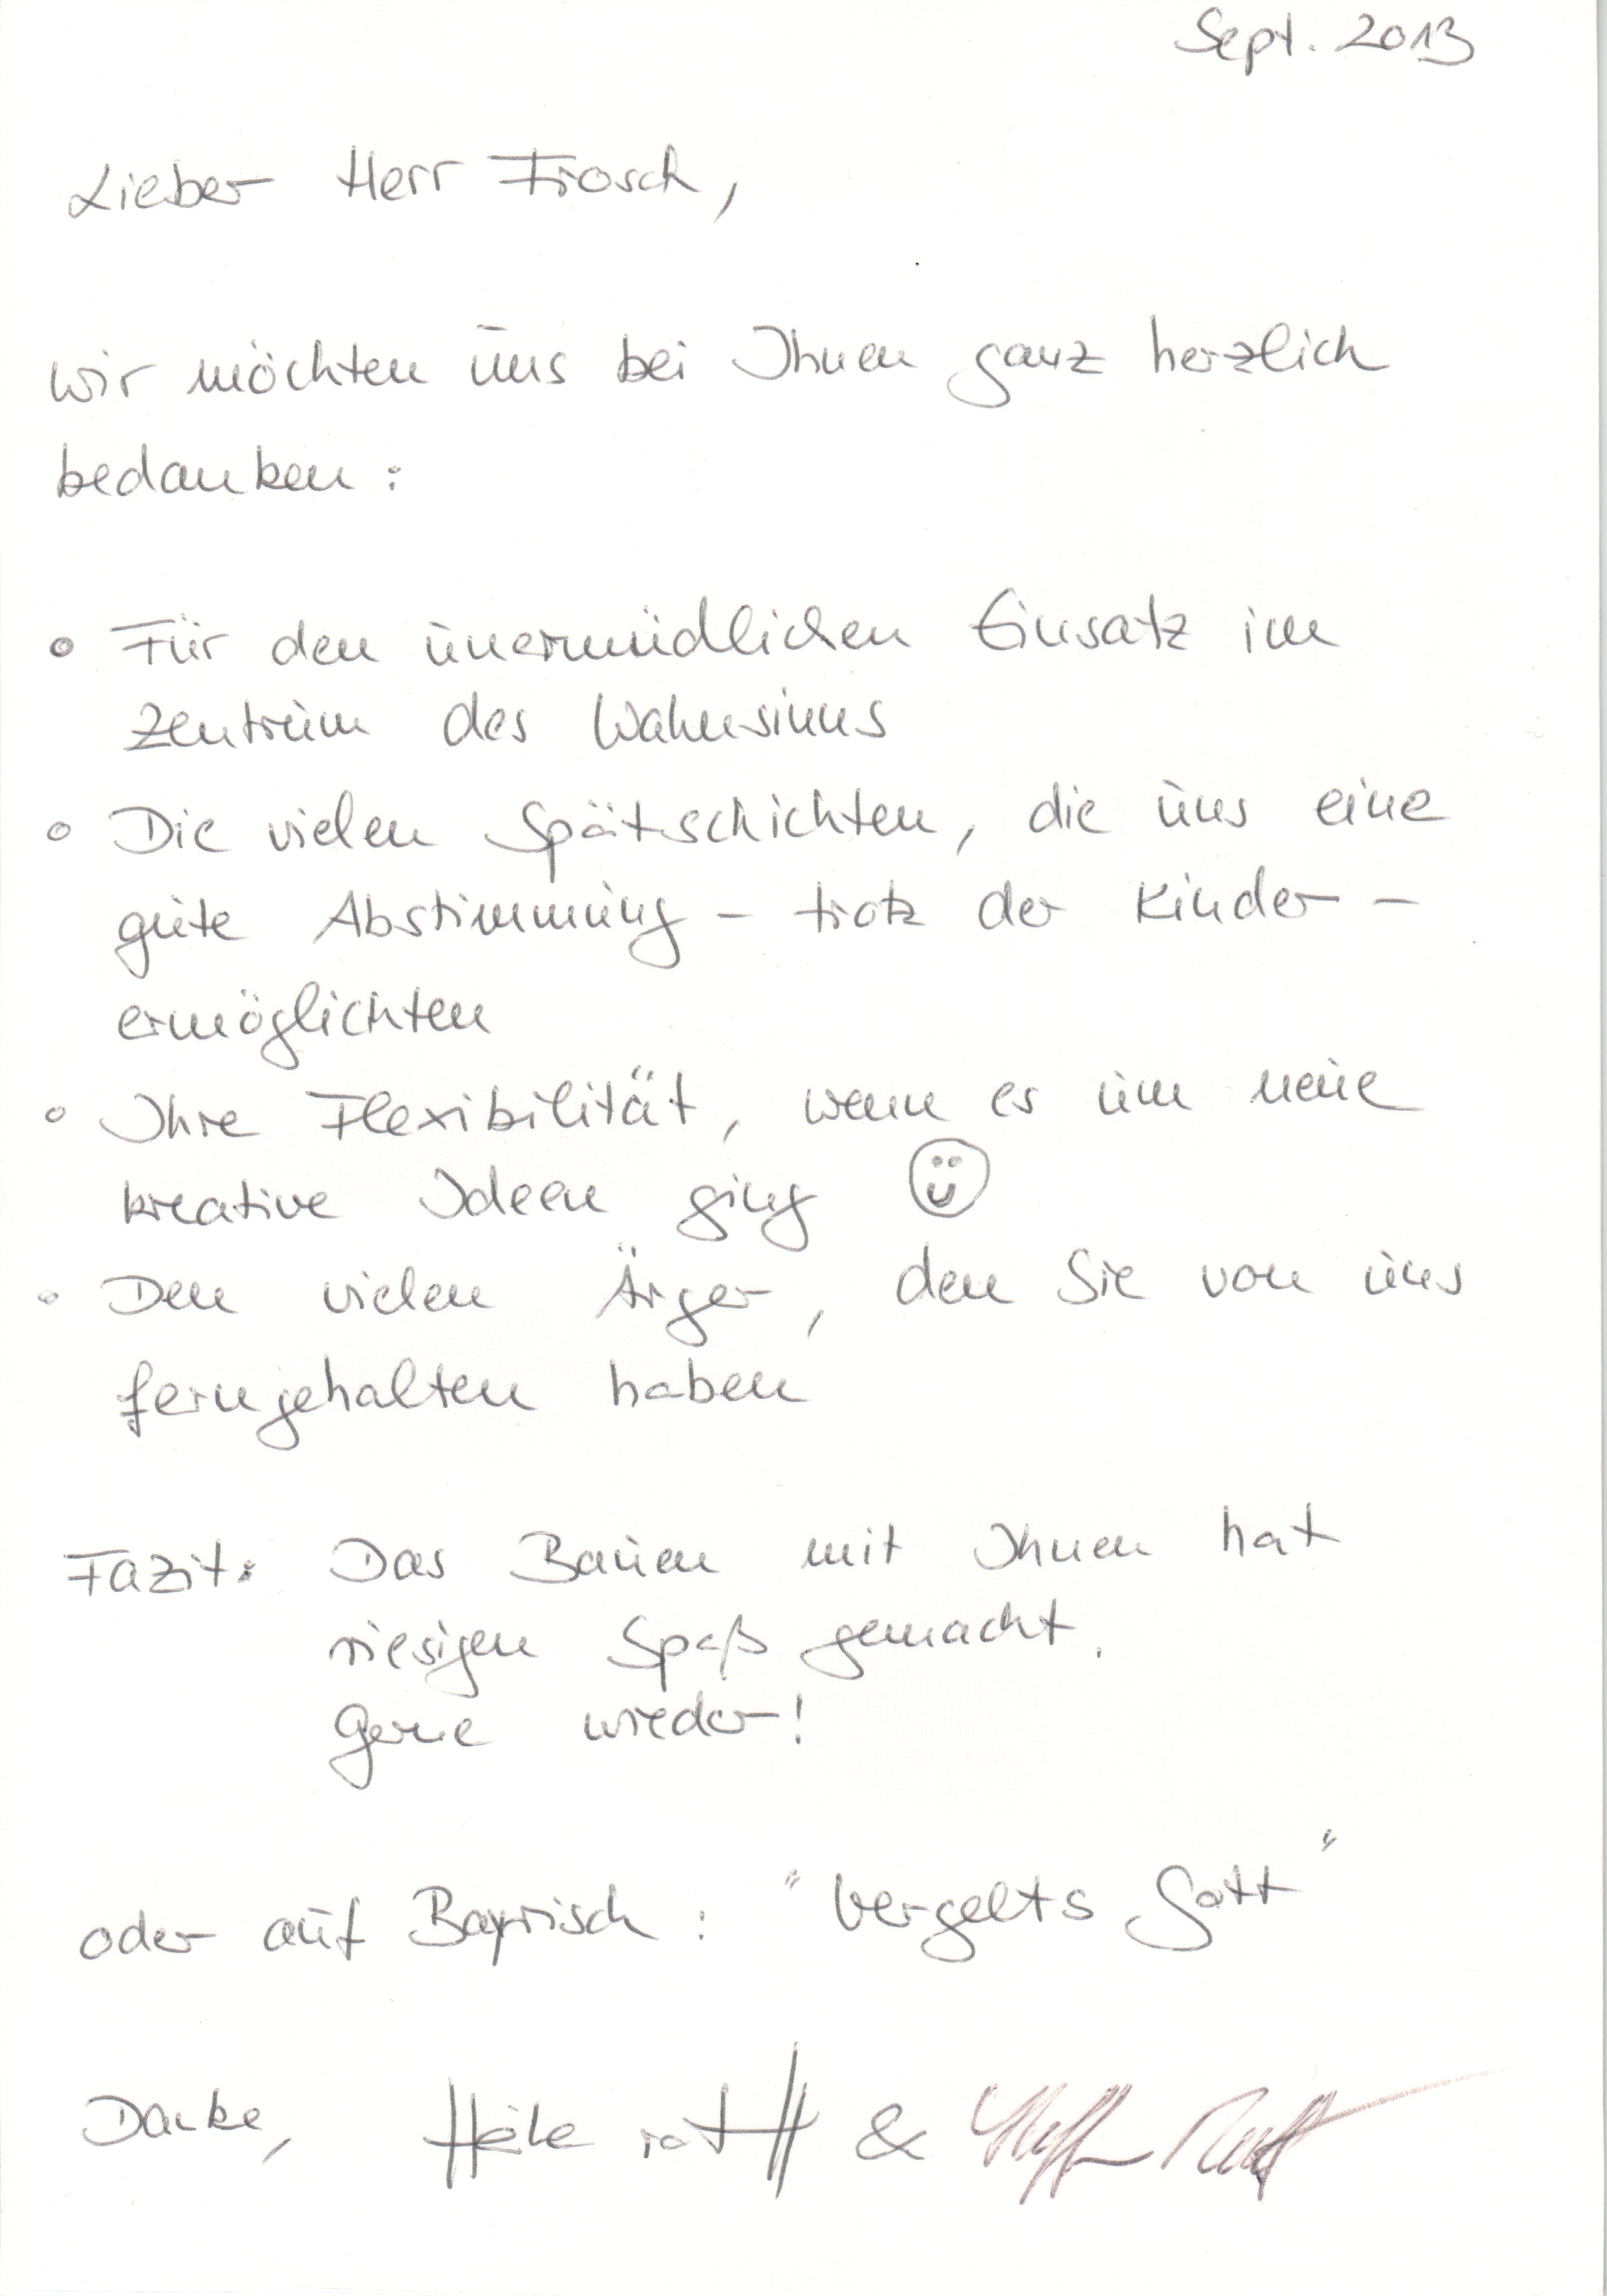 Sept. 2013
Lieber Herr Frosch,
wir möchten uns bei Ihnen ganz herzlich
bedanken:
° Für den unermüdlichen Einsatz im
Zentrum des Wahnsinns
° Die vielen Spätschichten, die uns eine
gute Abstimmung - trotz der Kinder -
ermöglichten
° Ihre Flexibilität, wenn es um neue
kreative Ideen ging ☺
° Den vielen Ärger, den Sie von uns
ferngehalten haben
Fazit: Das Bauen mit Ihnen hat
riesigen Spaß gemacht.
Gerne wieder!
oder auf Bayrisch: "vergelts Gott"
Danke, &